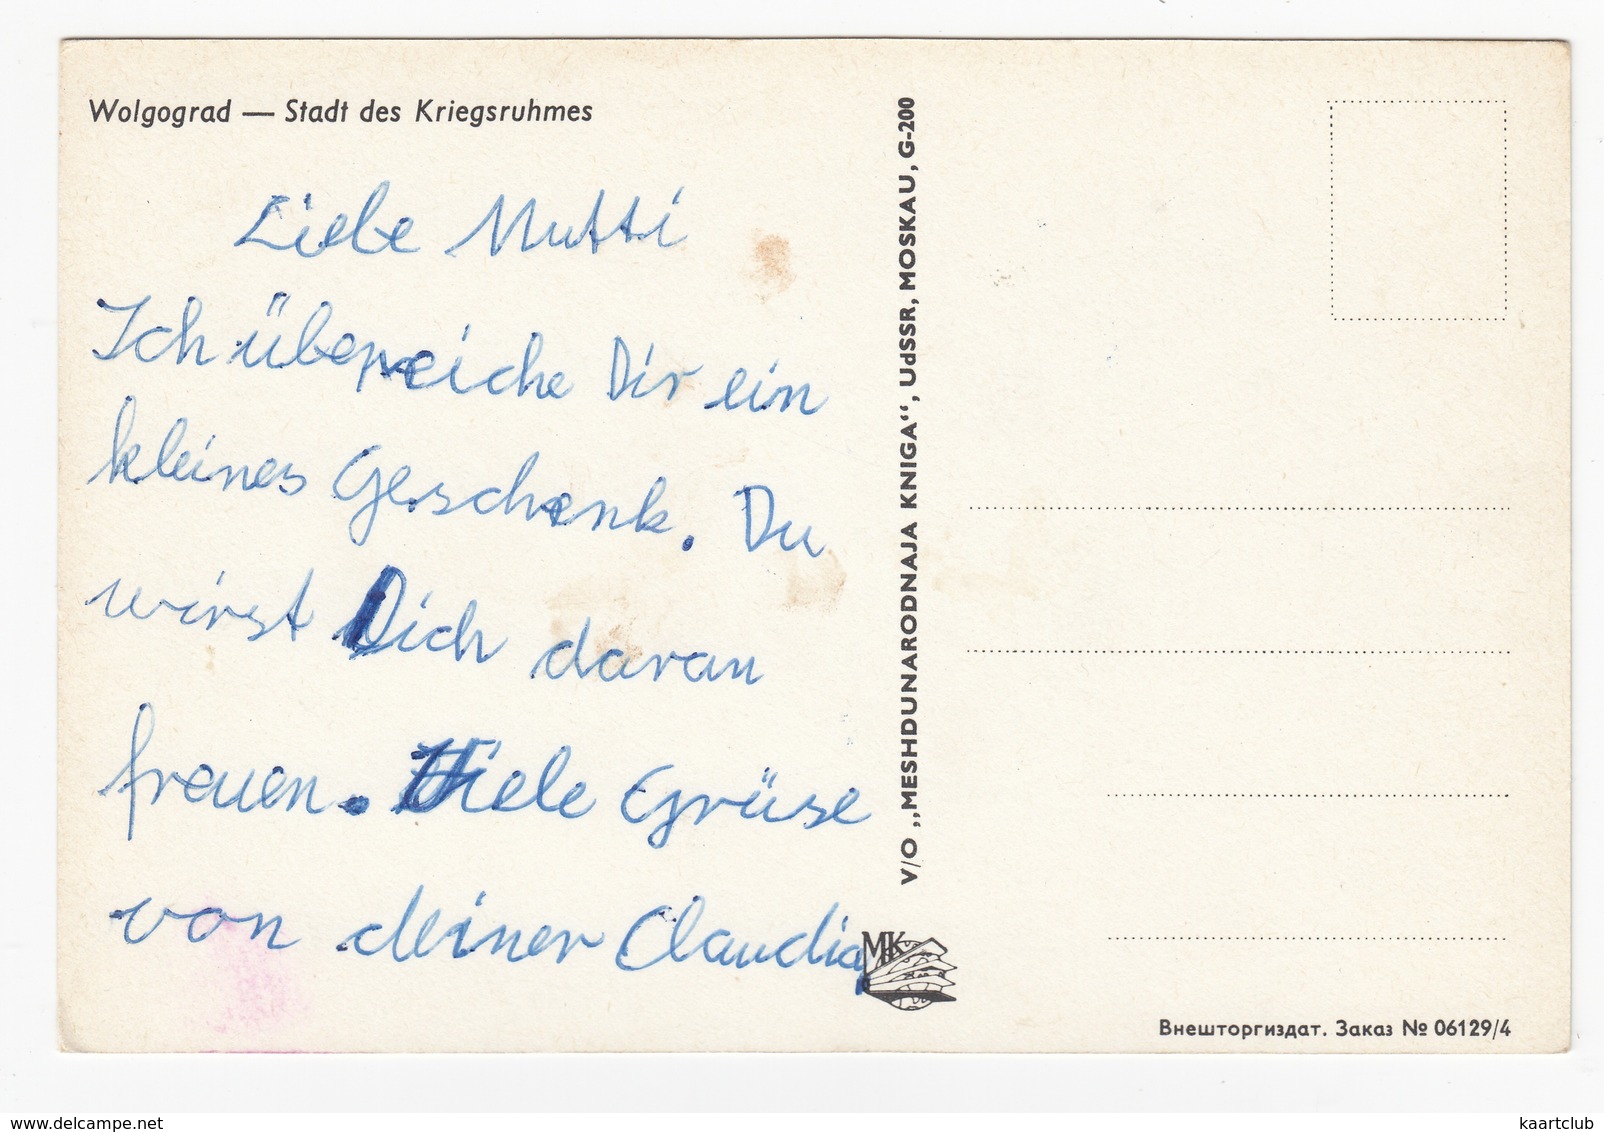 Wolgograd — Stadt des Kriegsruhmes
Liebe Mutti
Ich überreiche Dir ein
kleines Geschenk. Du
wirst Dich daran
freuen. Viele Grüse
von deiner Claudia
V/O „MESHDUNARODNAJA KNIGA“, UdSSR, MOSKAU, G-200
МК
Внешторгиздат. Заказ № 06129/4
delcampe.net
kaartclub